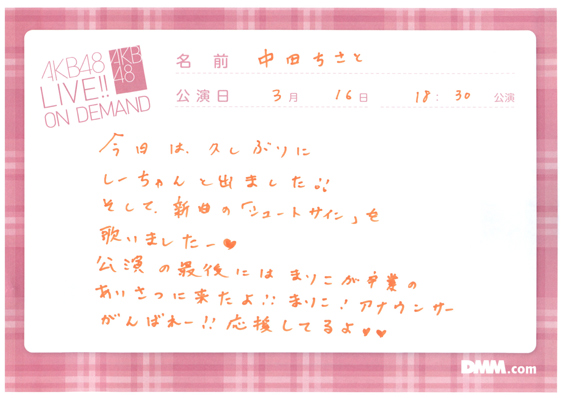 AKB48
LIVE!!
ON DEMAND
AKB
48
名前 中田ちさと
公演日 3月 16日 18:30 公演
今日は、久しぶりに
しーちゃんと出ました!!
そして、新曲の「シュートサイン」を
歌いましたー♥
公演の最後にはまりこが卒業の
あいさつに来たよ!!まりこ!アナウンサー
がんばれー!!応援してるよ♥♥
DMM.com